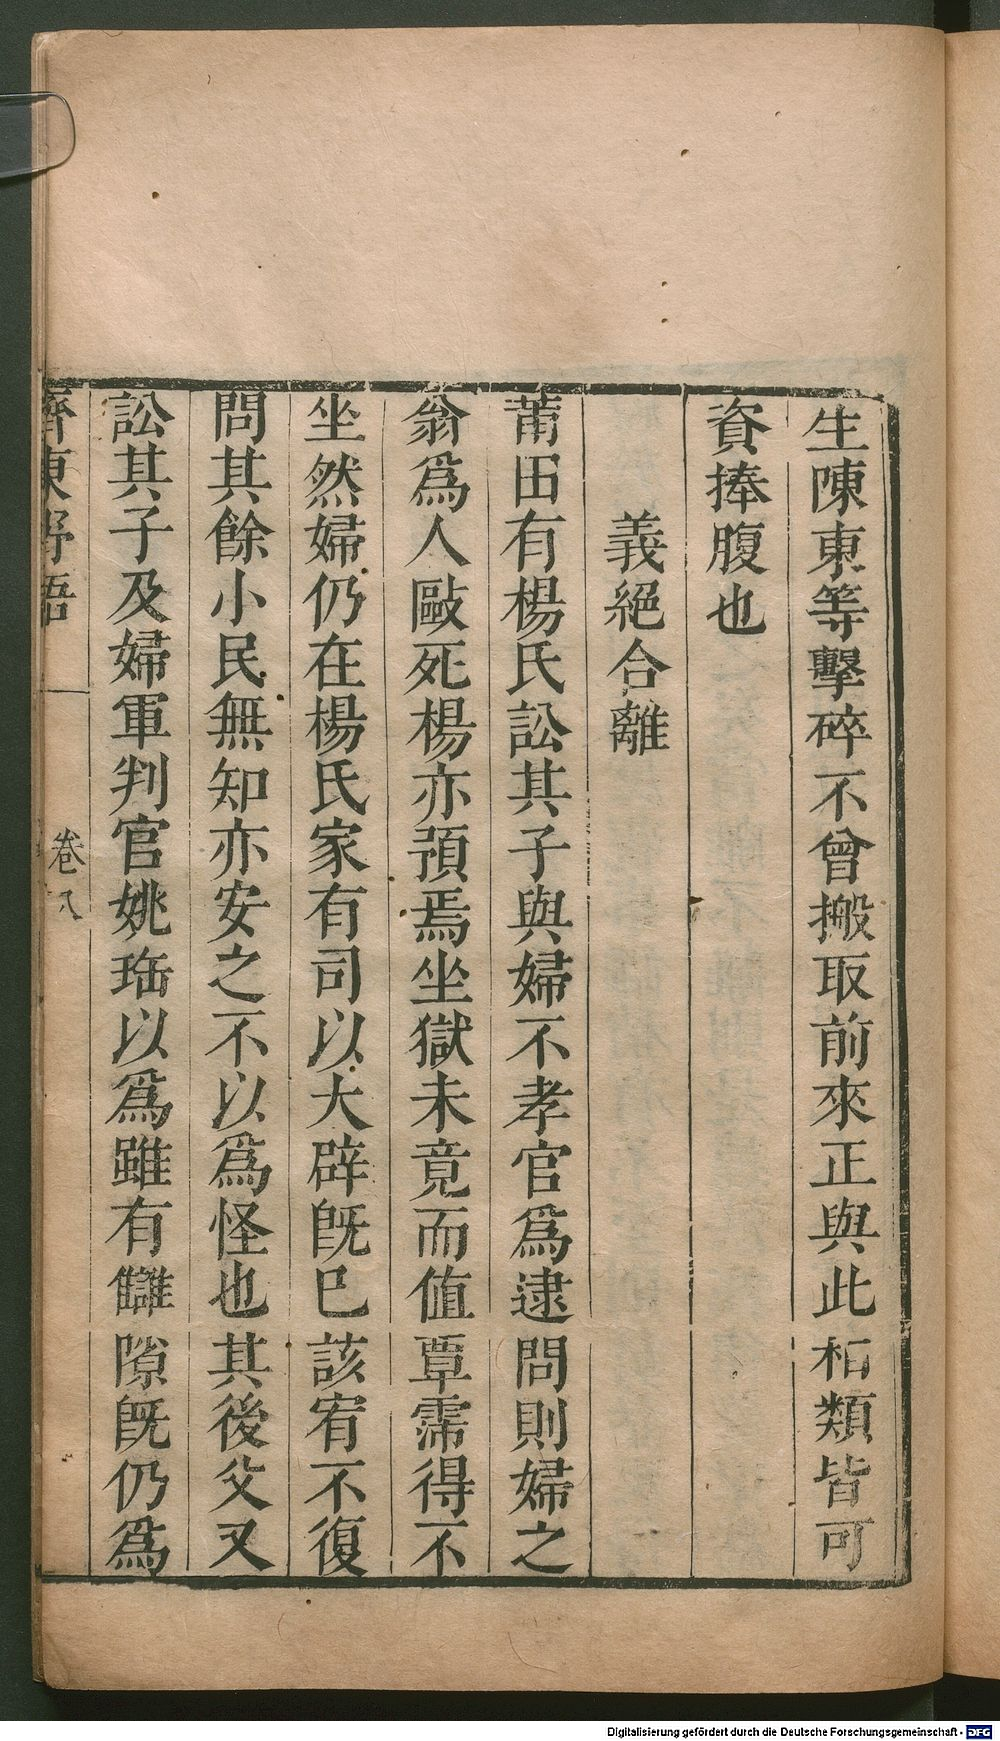 生陳東等擊碎不曾搬取前來正與此相類皆可
資捧腹也
義絕合離
莆田有楊氏訟其子與婦不孝官爲逮問則婦之
翁爲人毆死楊亦預焉坐獄未竟而值覃霈得不
坐然婦仍在楊氏家有司以大辟旣巳該宥不復
問其餘小民無知亦安之不以爲怪也其後父又
訟其子及婦軍判官姚珤以爲雖有讎隙旣仍爲
齊東野語
卷八
Digitalisierung gefördert durch die Deutsche Forschungsgemeinschaft - DFG